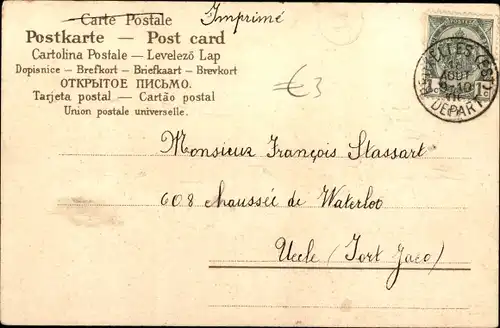 Carte Postale Imprimé
Postkarte — Post card
Cartolina Postale — Levelező Lap
Dopisnice — Brefkort — Briefkaart — Brevkort
ОТКРЫТОЕ ПИСЬМО.
Tarjeta postal — Cartão postal
Union postale universelle.
€3
AOUT
DEPART
Monsieur François Stassart
608 chaussée de Waterloo
Uccle (Fort Jaco)